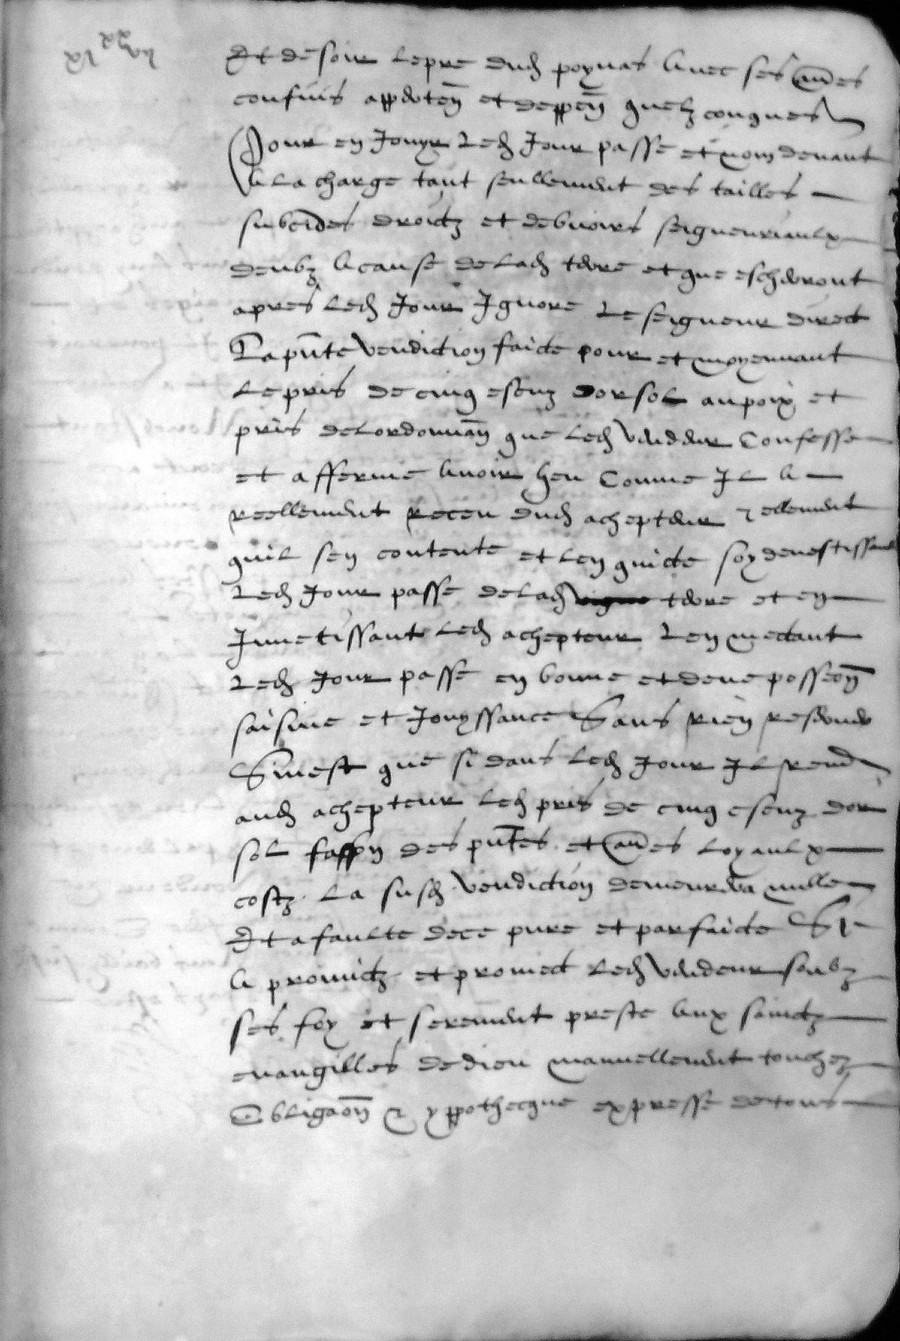 Et de soir le pre dud poynas avec ses aues
confins appten et deppen quelzconques
Pour en Jouyr led Jour passe et non devant
A la charge tant seullement des tailles
subcides droictz et debvoirs seigneuriaulx
deubz a cause de lad terre et que escherront
apres led Jour Ignore le seigneur direct
La pnte vendiction faicte pour et moyennant
le pris de cinq escuz dor sol au poix et
pris de lordonnan que led vendeur Confesse
et afferme avoir heu Comme Il a
reellement receu dud achepteur tellement
quil sen contente et len quicte soy devestissant
led Jour passe de lad terre et en
Invetissant led achepteur Len mectant
led Jour passe en bonne et deue posseon
saisine et Jouyssance Sans rien reserver
Sinest que si dans led Jour Il rend
aud achepteur led pris de cinq escuz dor
sol des pntes et aues loyaulx
costz La susd vendiction demeurera nulle
Et a faulte de ce pure et parfaicte Si
A promictz et promect led vendeur soubz
ses foy et serement preste aux sainctz
evangilles de dieu manuellement touchez
Obligaon & ypothecque expresse de tous